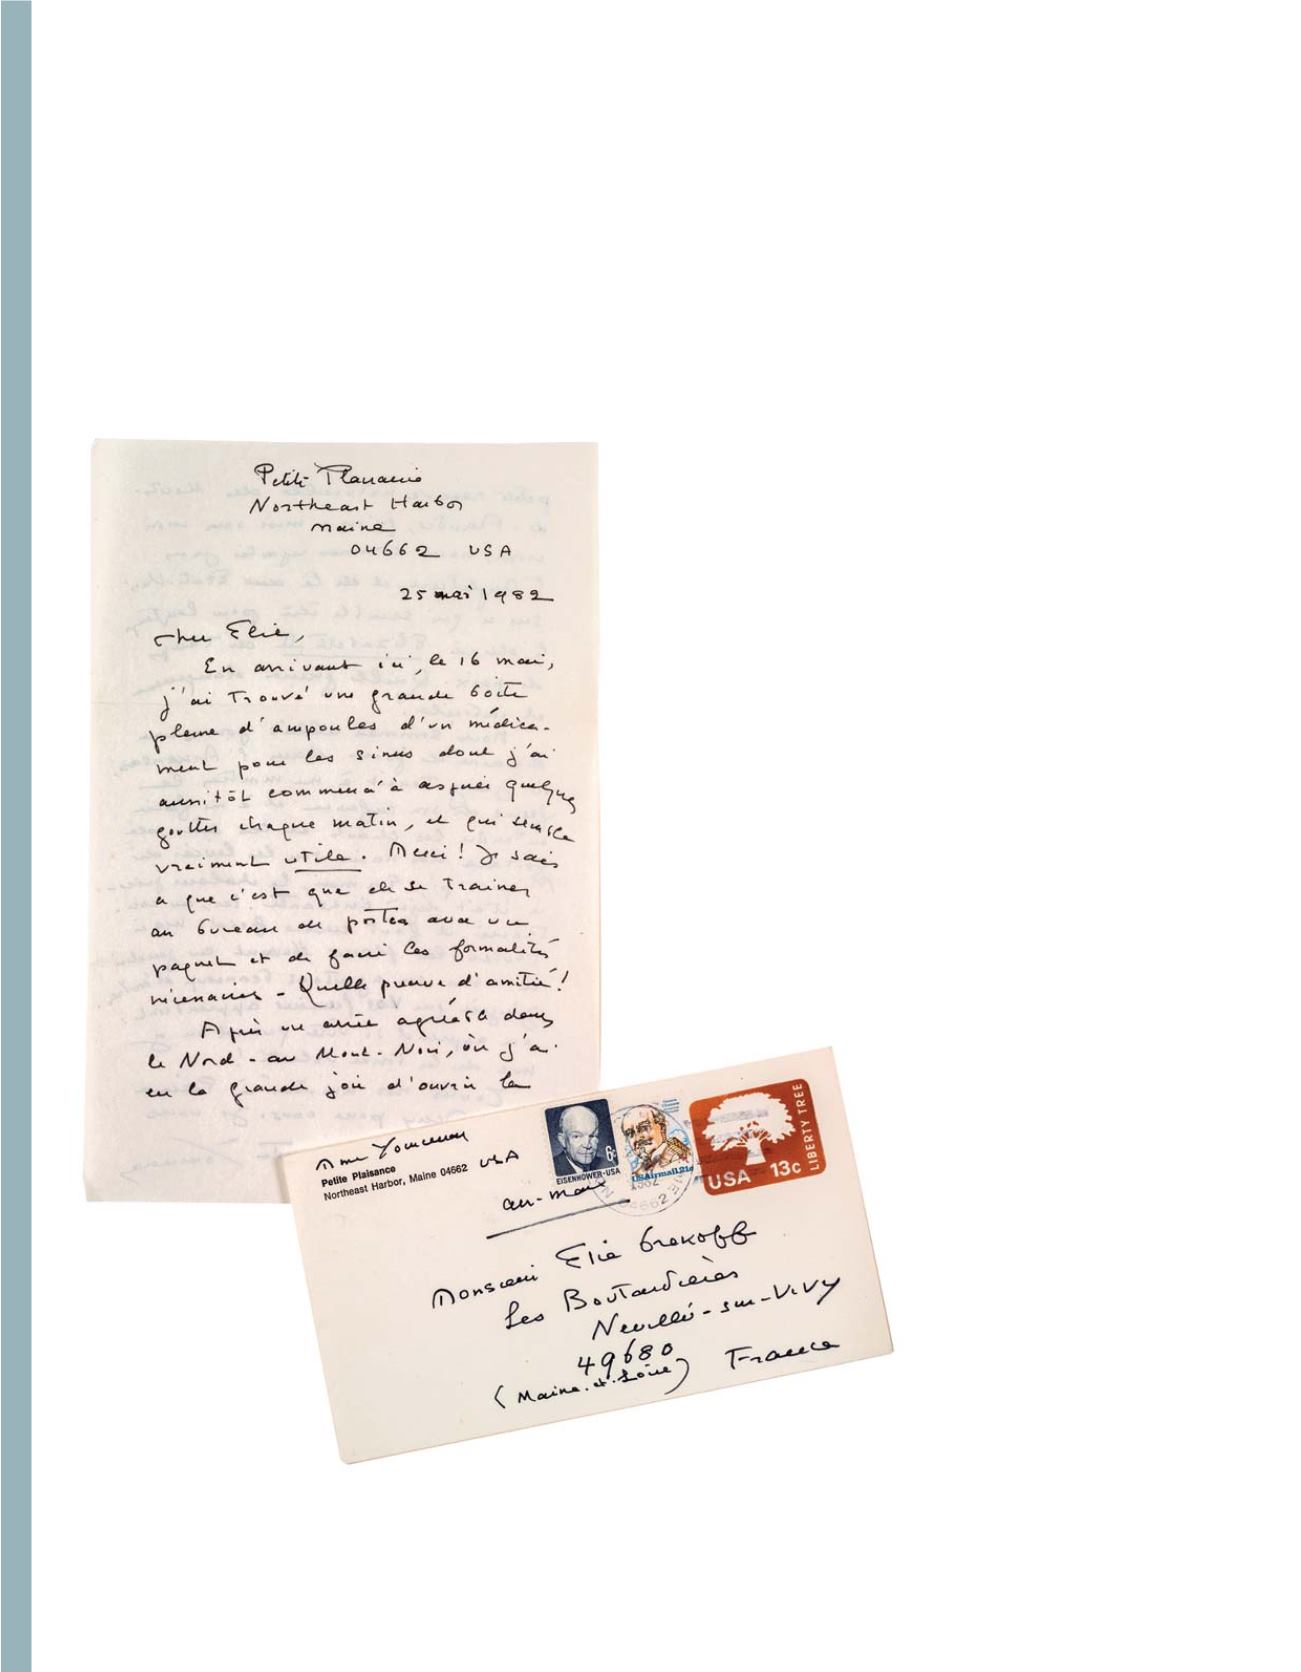 Petite Plaisance
Northeast Harbor
Maine
04662 USA
25 mai 1982
Cher Elie,
En arrivant ici, le 16 mai,
j'ai trouvé une grande boîte
pleine d'ampoules d'un médica-
ment pour les sinus dont j'ai
aussitôt commencé à aspirer quelques
gouttes chaque matin, et qui semble
vraiment utile. Merci! Je sais
ce que c'est que de se trainer
au bureau de postes avec un
paquet et de faire les formalités
nécessaires - Quelle preuve d'amitié!
Après un arrêt agréable dans
le Nord - au Mont-Noir, où j'ai
eu la grande joie d'ouvrir la
Mme Yourcenar
Petite Plaisance
Northeast Harbor, Maine 04662 USA
air-mail
6c
EISENHOWER·USA
USAirmail 21c
1982
04662
USA 13c
LIBERTY TREE
Monsieur Elie Grekoff
Les Boutardières
Neuillé-sur-Vivy
49680
(Maine-et-Loire) France